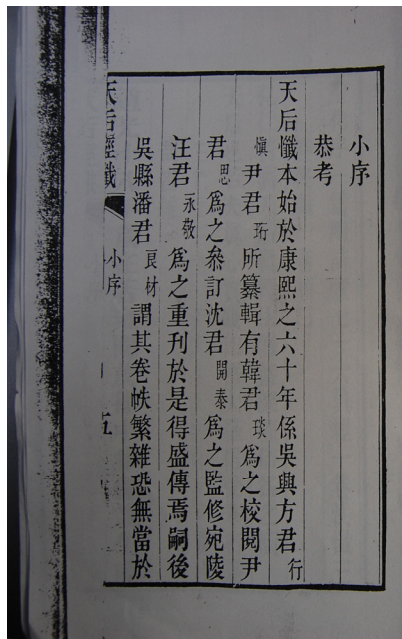 小序
恭考
天后懺本始於康熙之六十年係吳興方君行
愼尹君珩所纂輯有韓君琰爲之校閱尹
君思爲之叅訂沈君開泰爲之監修宛陵
汪君永敬爲之重刊於是得盛傳焉嗣後
吳縣潘君良材謂其卷帙繁雜恐無當於
天后經懺
小序
五